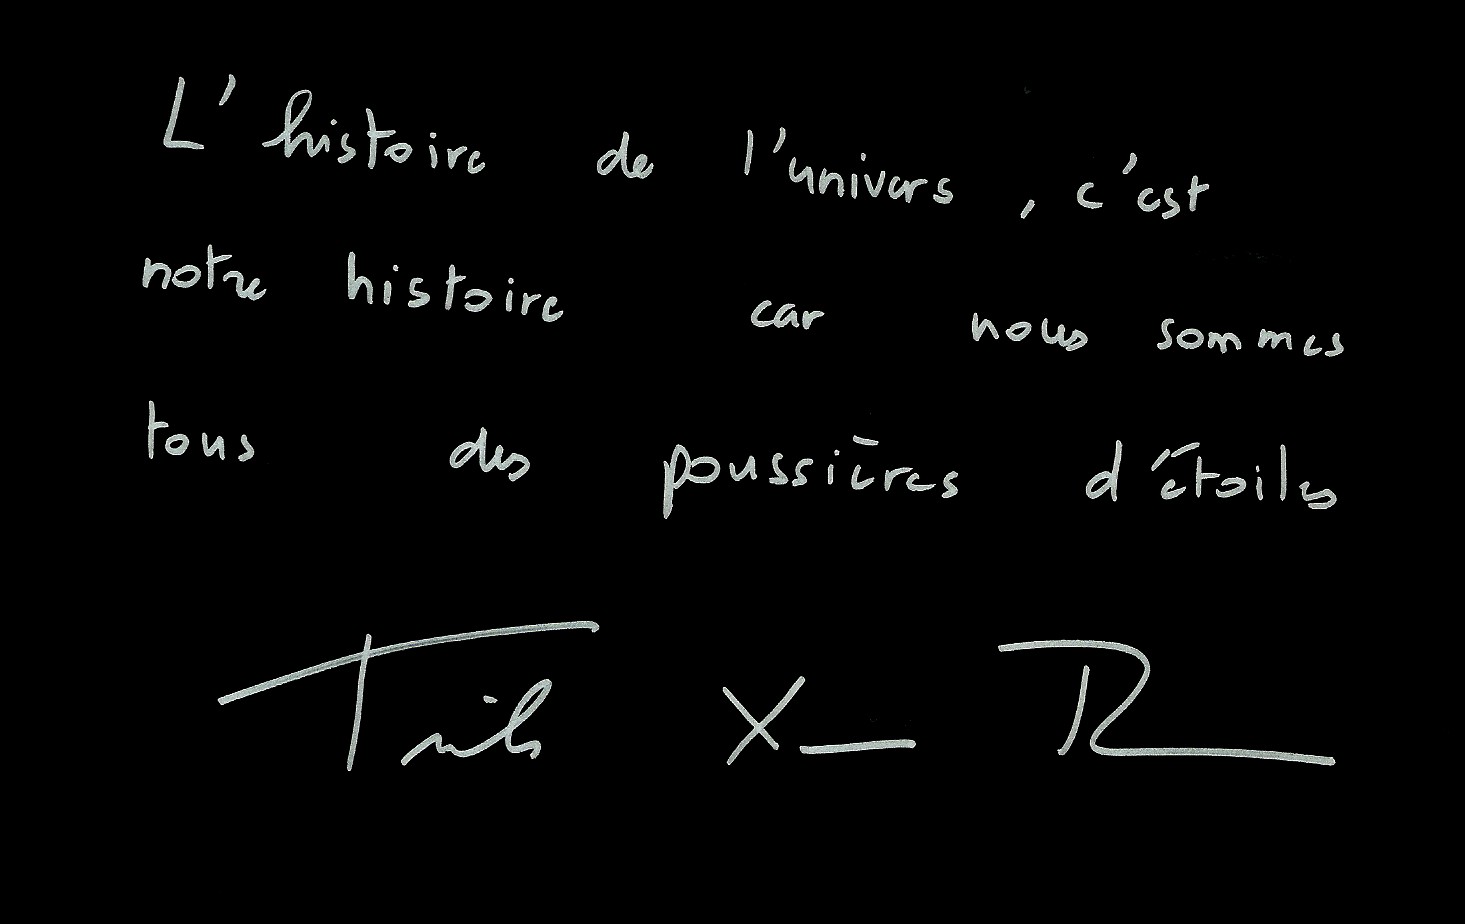 L'histoire de l'univers, c'est
notre histoire car nous sommes
tous des poussières d'étoiles
X R